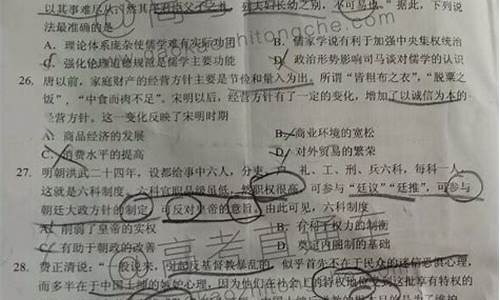 以其事难尽从
法最准确的是
A. 理论体系庞杂使儒学难有实际功用 B. 儒家学说有利于加强中央集权统治
C. 强化伦理道德规范是儒学主要功能 D. 政治形势影响司马谈对儒学的认识
26. 唐以前，家庭财产的经营方针主要是节俭和量入为出。所谓“皆粗布之衣”，“脱粟之
饭”，“中食而肉不足”。宋明以后，经营方针有了一定的变化，增加了以诚信为本的
经营方针。这一变化反映了宋明时期
A. 商品经济的发展 B. 商业环境的宽松
C. 消费水平的提高 D. 对外贸易的繁荣
27. 明朝洪武二十四年，设都给事中六人，分吏、户、礼、工、刑、兵六科，每科一人，
这就是六科制度。六科官职品级虽低，然职权很高，可参与“廷议”“廷推”，可参与
朝廷大政方针的制定，可反对皇帝的意旨。由此可见，六科制度
A. 削弱了皇帝的实权 B. 有利于权力的制衡
C. 有助于朝政的改善 D. 奠定内阁制的基础
28. 费正清说：“一般说来，对起反基督教暴乱的，似乎首先不在于民众的迷信恐惧心理，
而多半在于中国士绅的嫉妒心理，因为他们在社会上的特权地位受到这批享有特权的